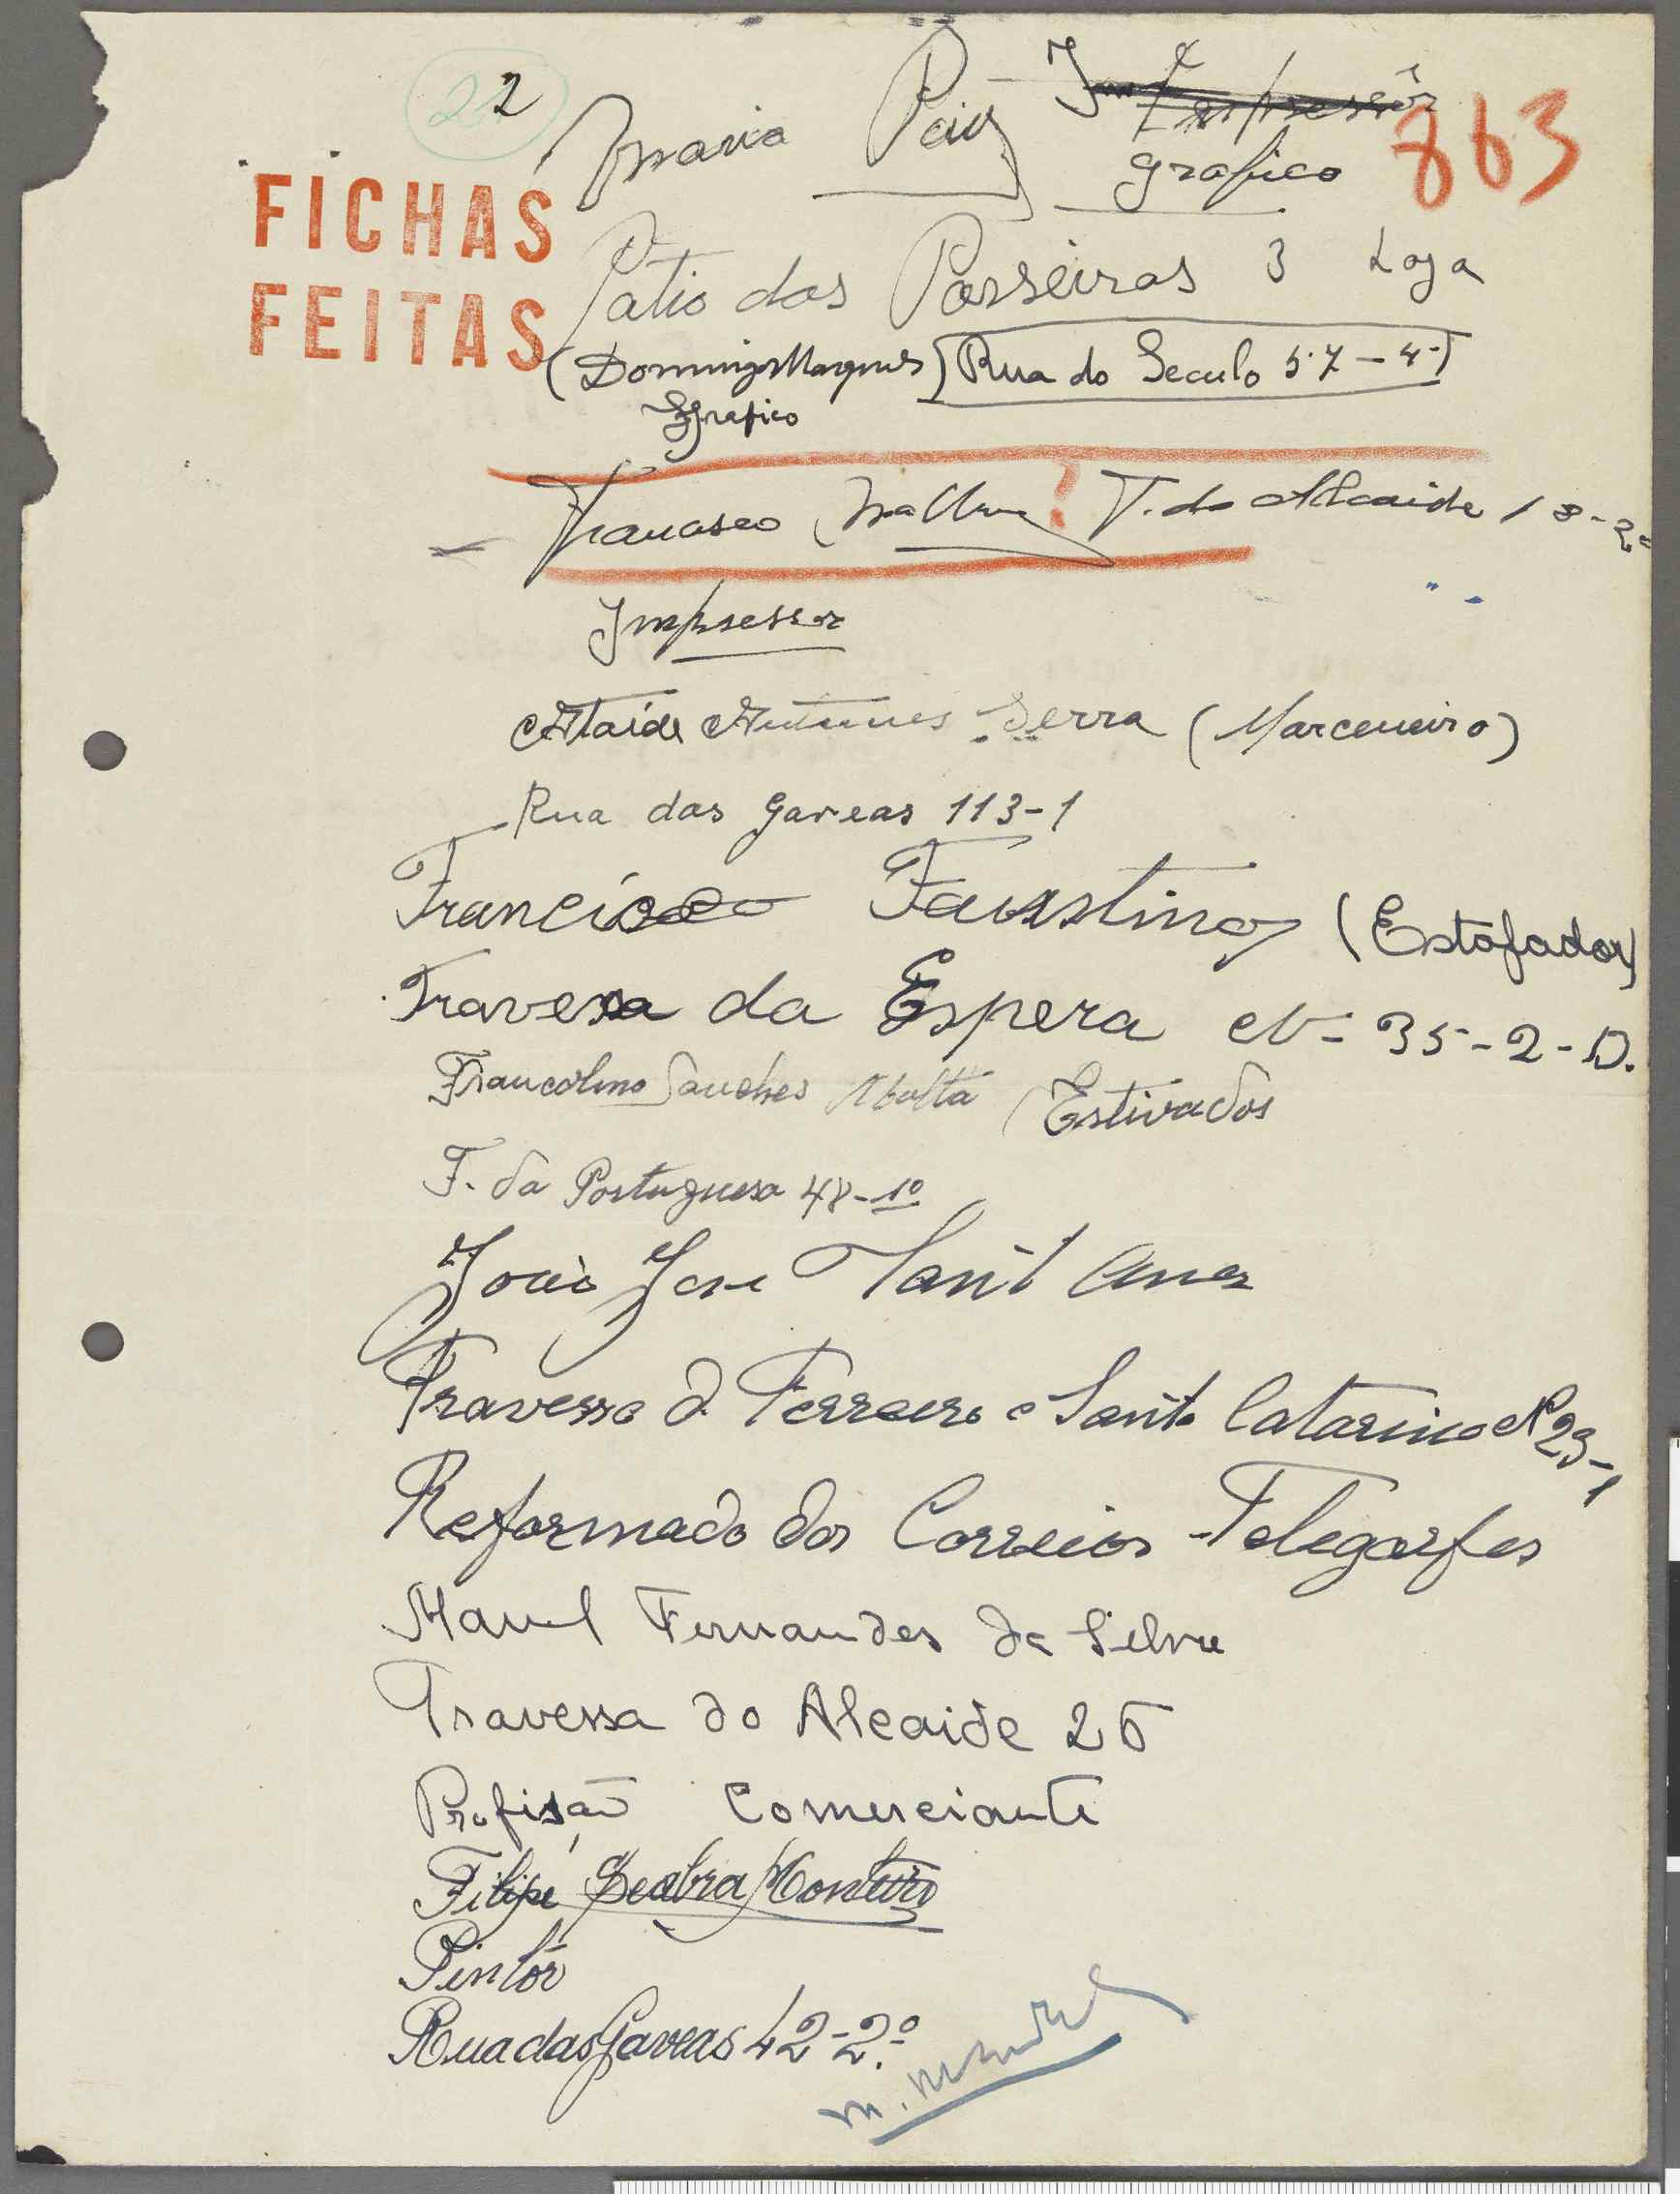 22
863
FICHAS
FEITAS
Maria Paiz Impressôr
grafico
Pátio das Parreiras 3 Loja
(Domingos Marques) Rua do Seculo 57-4º
Grafico
Francisco ? T. do Alcaide 18-2º
Impressor
Ataíde Antunes Serra (Marceneiro)
Rua das Gaveas 113-1
Francisco Faustino (Estofador)
Travessa da Espera Nº 35-2-D.
Francolino Sanches (Estivador
T. da Portuguesa 48-1º
João Jose Sant Ana
Travessa d. Ferreiro a Santa Catarina Nº 23-1
Reformado dos Correios - Telegarfes
Manuel Fernandes da Silva
Travessa do Alcaide 26
Profisão Comerciante
Filipe Seabra Monteiro
Pintôr
Rua das Gaveas 42-2º